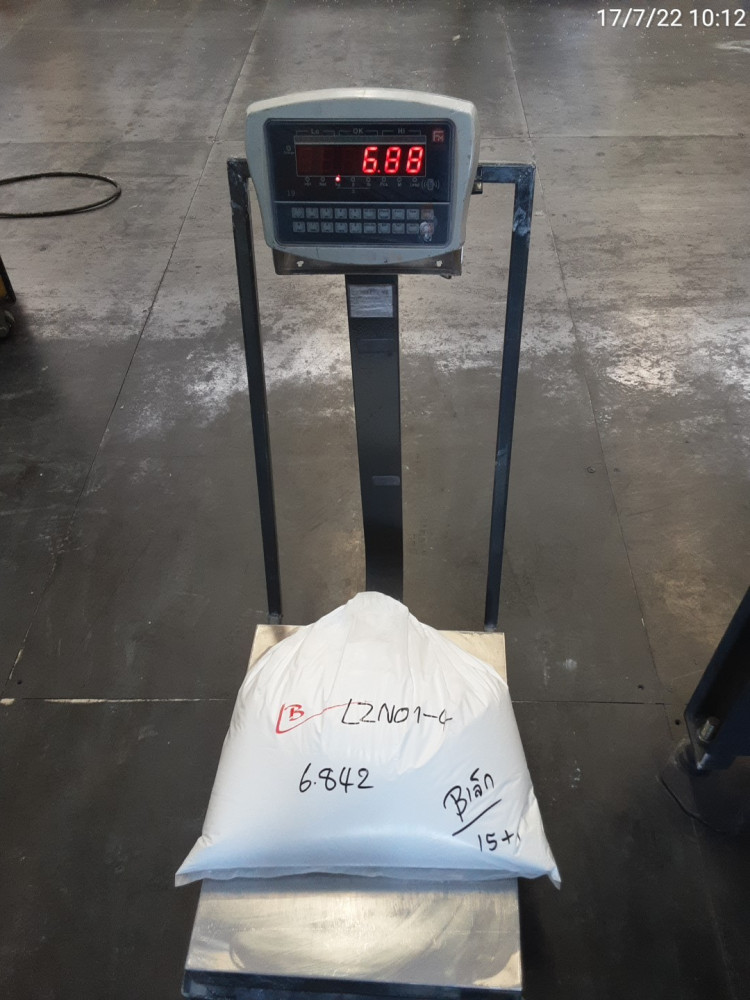 17/7/22 10:12
Lo OK Hi
6.88
B LZN01-4
6.842
Bเล็ก
15+